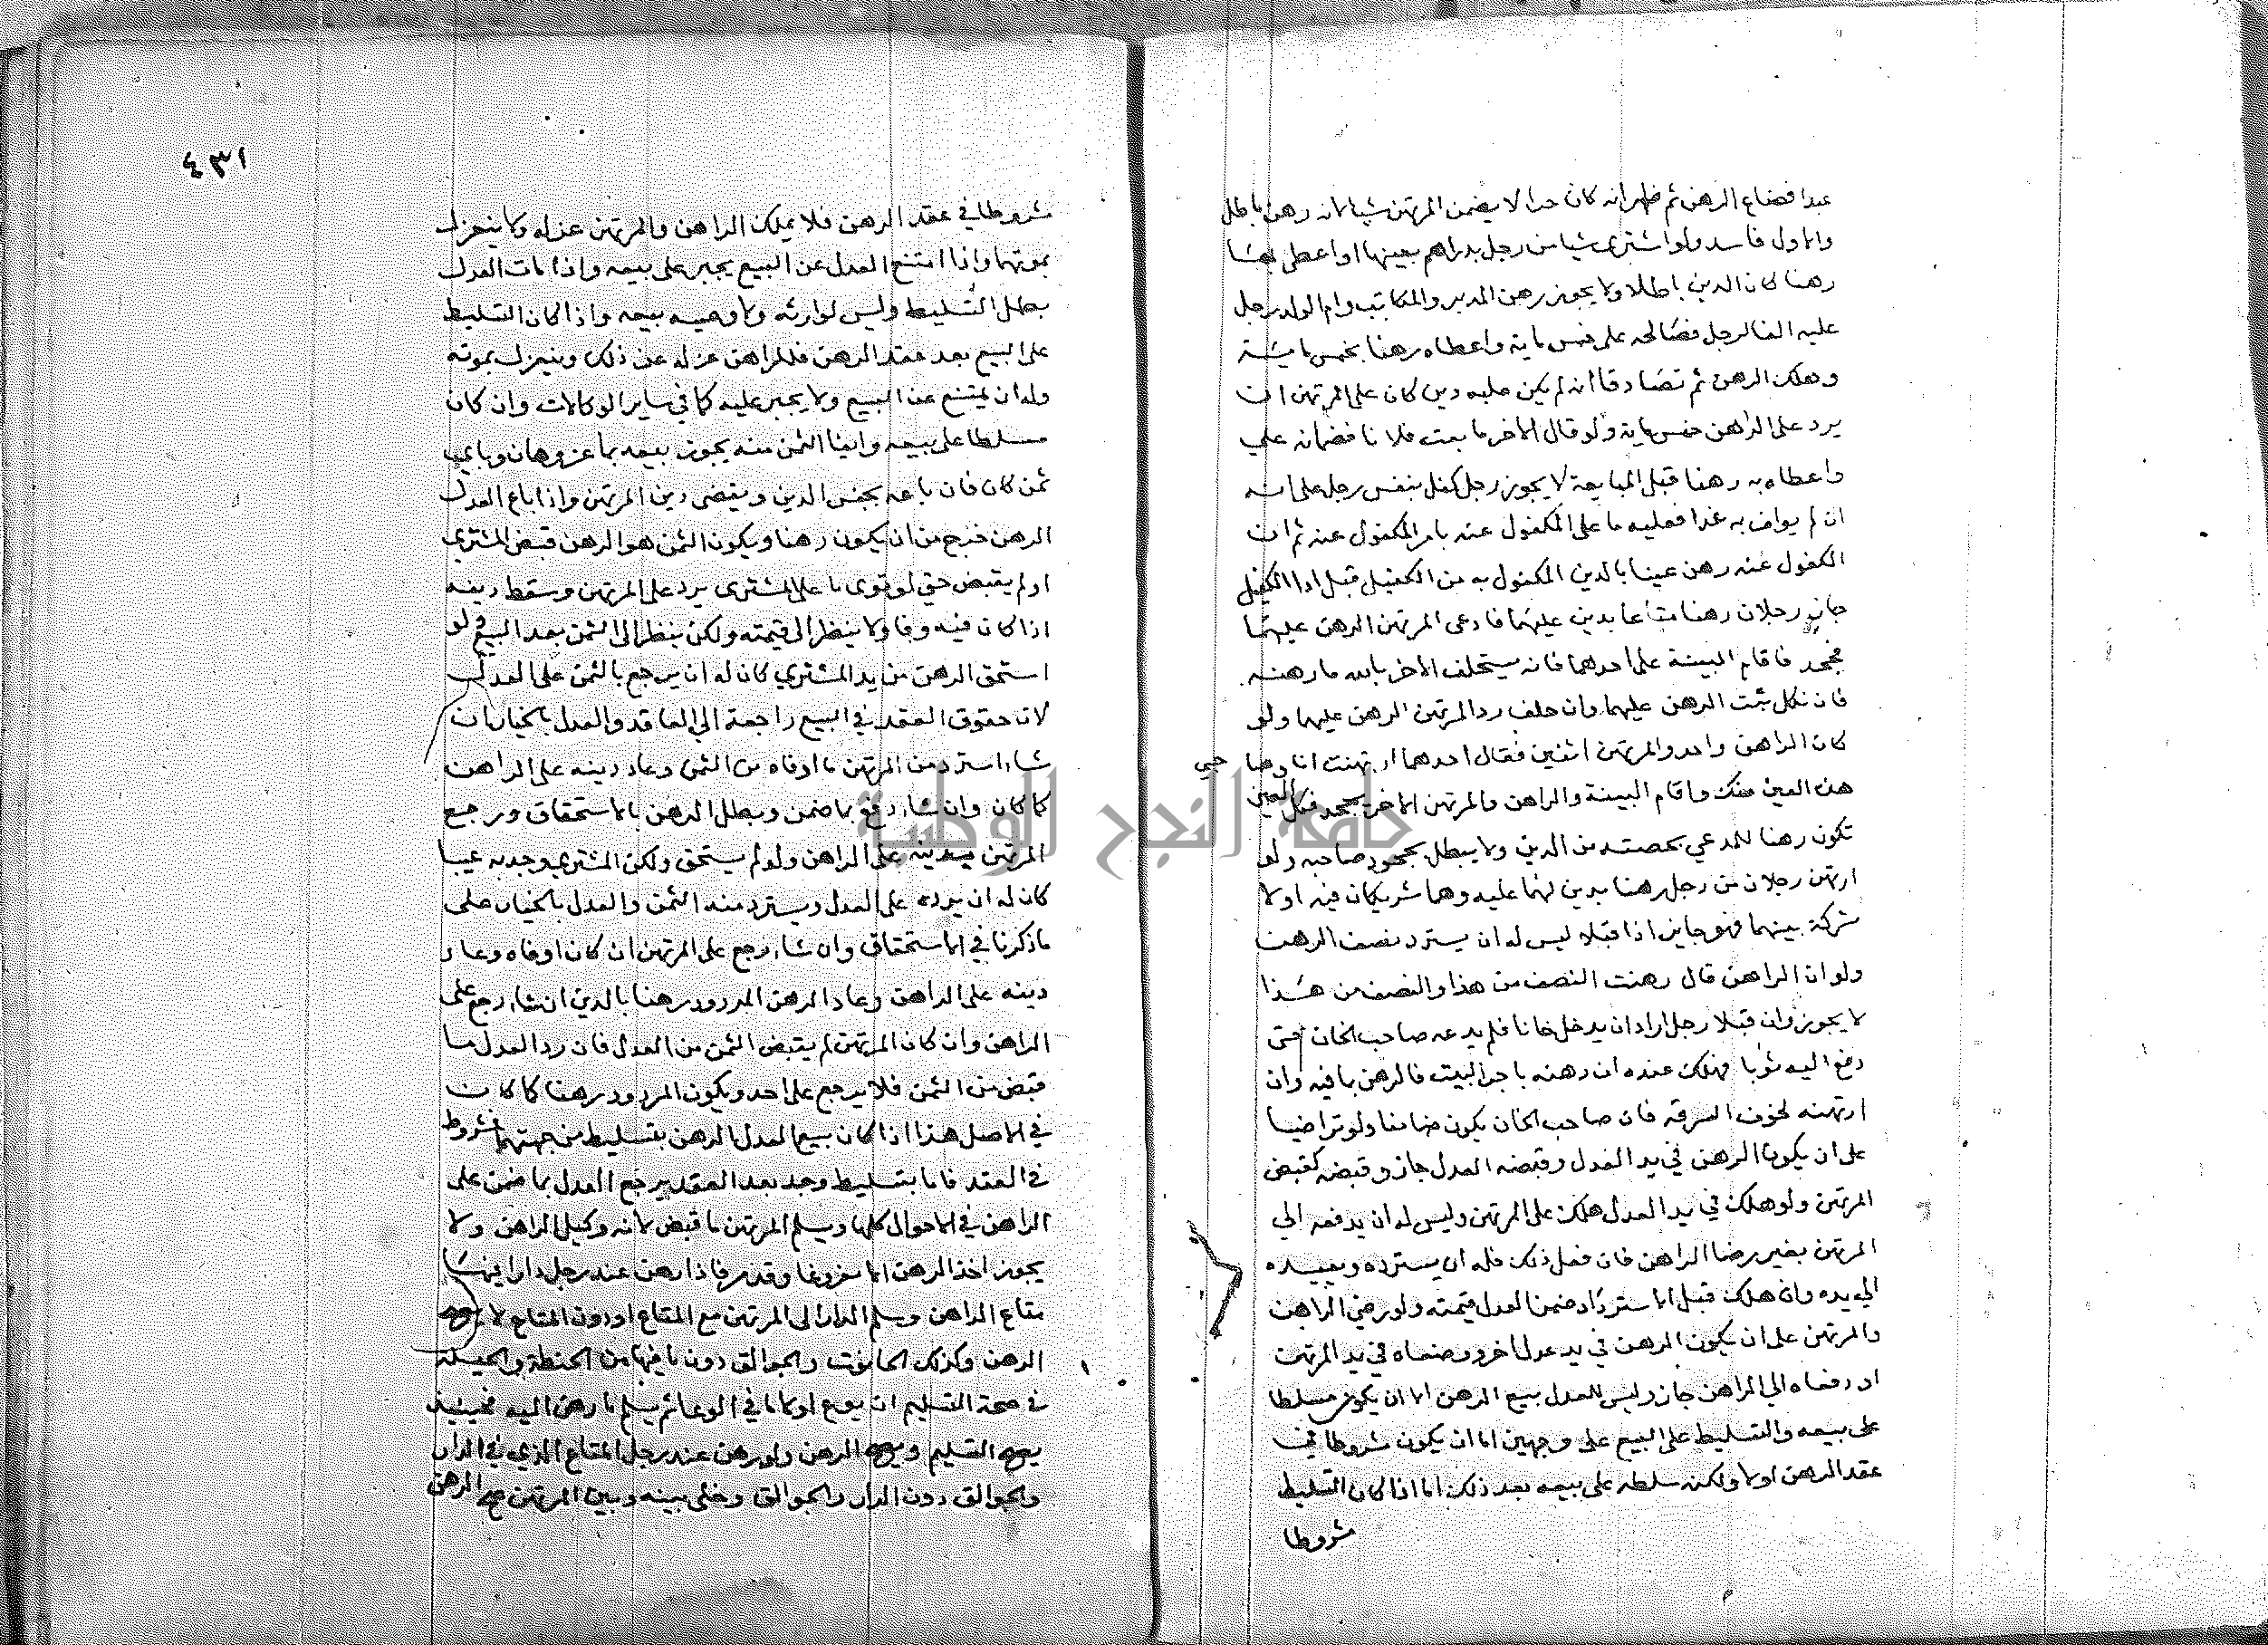 عبدا فضاع الرهن ثم ظهر انه كان حرا لا يضمن المرتهن شيا لانه رهن باطل
والاول فاسد ولو اشترى شيا من رجل بدراهم بعينها او اعطى بها
رهنا كان الدين باطلا ولا يجوز رهن المدبر والمكاتب وام الولد رجل
عليه الف لرجل فصالحه على خمس ماية واعطاه رهنا بخمس ماية
وهلك الرهن ثم تصادقا انه لم يكن عليه دين كان على المرتهن ان
يرد على الراهن خمس ماية ولو قال لاخر ما بعت فلانا فضمانه علي
واعطاه به رهنا قبل المبايعة لا يجوز رجل كفل بنفس رجل على انه
ان لم يواف به غدا فعليه ما على المكفول عنه بامر المكفول عنه ثم ان
المكفول عنه رهن عينا بالدين المكفول به من الكفيل قبل ادا الكفيل
جاز رجلان رهنا متاعا بدين عليهما فادعى المرتهن الرهن عليهما
فجحد فاقام البينة على احدهما فانه يستحلف الاخر بالله ما رهنه
فان نكل يثبت الرهن عليهما وان حلف رد المرتهن الرهن عليهما ولو
كان الراهن واحد والمرتهن اثنين فقال احدهما ارتهنت انا وصاحبي
هذه العين منك واقام البينة والراهن والمرتهن الاخر يجحد فكل العين
تكون رهنا للمدعي بحصته من الدين ولا يبطل بجحود صاحبه ولو
ارتهن رجلان من رجل رهنا بدين لهما عليه وهما شريكان فيه او لا
شركة بينهما فهو جايز اذا قبلا ليس له ان يسترد نصف الرهن
ولو ان الراهن قال رهنت النصف من هذا والنصف من هذا
لا يجوز وان قبلا رجل اراد ان يدخل خانا فلم يدعه صاحب الخان حتى
دفع اليه ثوبا فهلك عنده ان رهنه باجر البيت فالرهن بما فيه وان
ارتهنه لخوف السرقه فان صاحب الخان يكون ضامنا ولو تراضيا
على ان يكونا الرهن في يد العدل وقبضه العدل جاز وقبضه كقبض
المرتهن ولو هلك في يد العدل هلك على المرتهن وليس له ان يدفعه الي
المرتهن بغير رضا الراهن فان فعل ذلك فله ان يسترده ويعيده
الي يده وان هلك قبل الاسترداد ضمن العدل قيمته ولو رضي الراهن
والمرتهن على ان يكون الرهن في يد عدل اخر ووضعاه في يد المرتهن
او دفعاه الي الراهن جاز وليس للعدل بيع الرهن الا ان يكون مسلطا
على بيعه والتسليط على البيع على وجهين اما ان يكون مشروطا في
عقد الرهن اولا ولكنه سلطه على بيعه بعد ذلك اما اذا كان التسليط
مشروطا
٤٣١
مشروطا في عقد الرهن فلا يملك الراهن والمرتهن عزله ولا ينعزل
بموتهما واذا امتنع العدل عن البيع يجبر على بيعه واذا مات العدل
بطل التسليط وليس لوارثه ولا وصيه بيعه واذا كان التسليط
على البيع بعد عقد الرهن فللراهن عزله عن ذلك وينعزل بموته
وله ان يمتنع عن البيع ولا يجبر عليه كما في ساير الوكالات وان كان
مسلطا على بيعه وايفا الثمن منه يجوز بيعه بما عز وهان وباي
ثمن كان فان باعه بجنس الدين ويقضى دين المرتهن واذا باع العدل
الرهن خرج من ان يكون رهنا ويكون الثمن هو الرهن قبض المشتري
او لم يقبض حتى لو توى ما على المشترى يرد على المرتهن وسقط دينه
اذا كان فيه وفا ولا ينظر الى قيمته ولكن ينظر الى الثمن بعد البيع فلو
استحق الرهن من يد المشتري كان له ان يرجع بالثمن على العدل
لان حقوق العقد في البيع راجعة الي العاقد والعدل بالخيار ان
شاء استرد من المرتهن ما اوفاه من الثمن وعاد دينه على الراهن
كما كان وان شاء رجع بما ضمن ويبطل الرهن بالاستحقاق ورجع
المرتهن بدينه على الراهن ولو لم يستحق ولكن المشتري وجد به عيبا
كان له ان يرده على العدل ويسترد منه الثمن والعدل بالخيار على
ما ذكرنا في الاستحقاق وان شاء رجع على المرتهن ان كان اوفاه وعاد
دينه على الراهن وعاد الرهن المردود رهنا بالدين ان شاء رجع على
الراهن وان كان المرتهن لم يقبض الثمن من العدل فان رد العدل ما
قبض من الثمن فلا يرجع على احد ويكون المردود رهنا كما كان
في الاصل هذا اذا كان بيع العدل الرهن بتسليط من جهتهما مشروط
في العقد فاما بتسليط وجد بعد العقد يرجع العدل بما ضمن على
الراهن في الاحوال كلها ويسلم المرتهن ما قبض لانه وكيل الراهن ولا
يجوز اخذ الرهن الا مفروغا وقد مر فاذا رهن عند رجل دارا فيها
متاع الراهن وسلم الدار الى المرتهن مع المتاع او دون المتاع لا يصح
الرهن وكذلك الحانوت والجوالق دون ما فيها من الحنطة والحيلة
في صحة التسليم ان يودع اولا ما في الوعاء ثم يسلم ما رهن اليه فحينئذ
يصح التسليم ويصح الرهن ولو رهن عند رجل المتاع الذي في الدار
والجوالق دون الدار والجوالق وخلى بينه وبين المرتهن صح الرهن
جامعة النجاح الوطنية